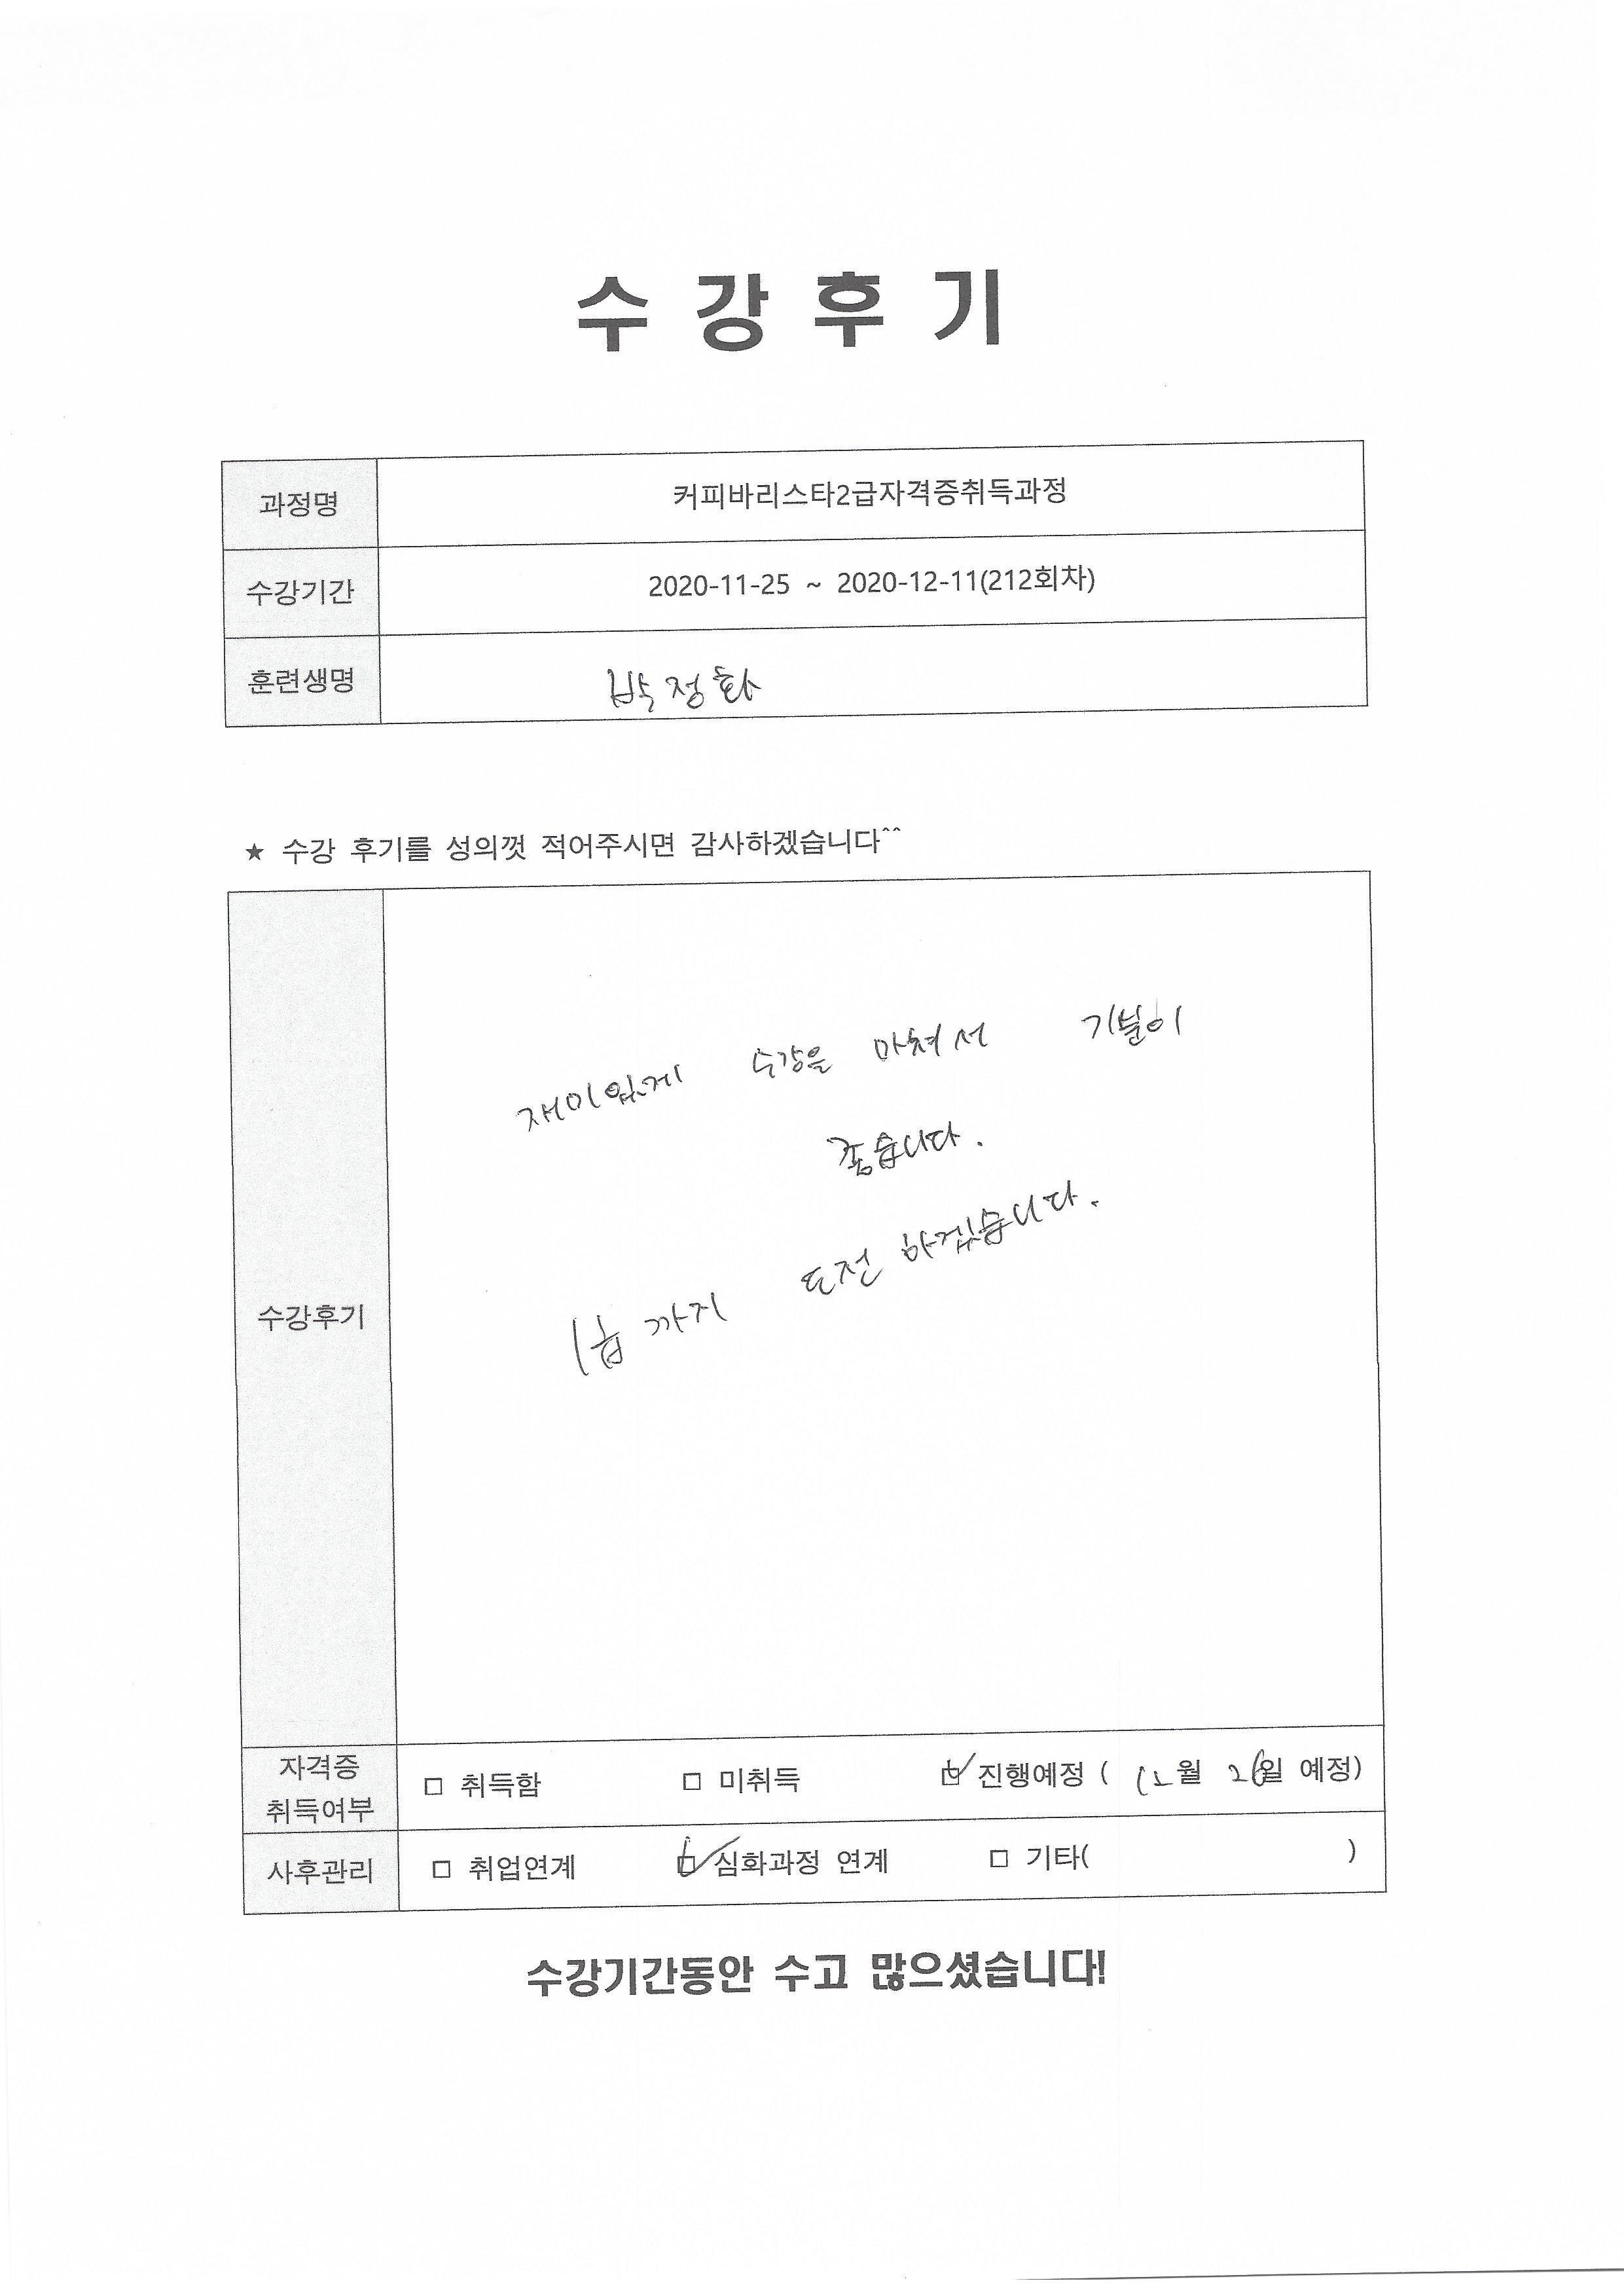 수 강 후 기
과정명 커피바리스타2급자격증취득과정
수강기간 2020-11-25 ~ 2020-12-11(212회차)
훈련생명 박정화
★ 수강 후기를 성의껏 적어주시면 감사하겠습니다^^
재미있게 수강을 마쳐서 기분이
좋습니다.
1급 까지 도전 하겠습니다.
수강후기
자격증
취득여부
□ 취득함 □ 미취득 ☑ 진행예정 ( 12월 26일 예정)
사후관리 □ 취업연계 ☑ 심화과정 연계 □ 기타( )
수강기간동안 수고 많으셨습니다!